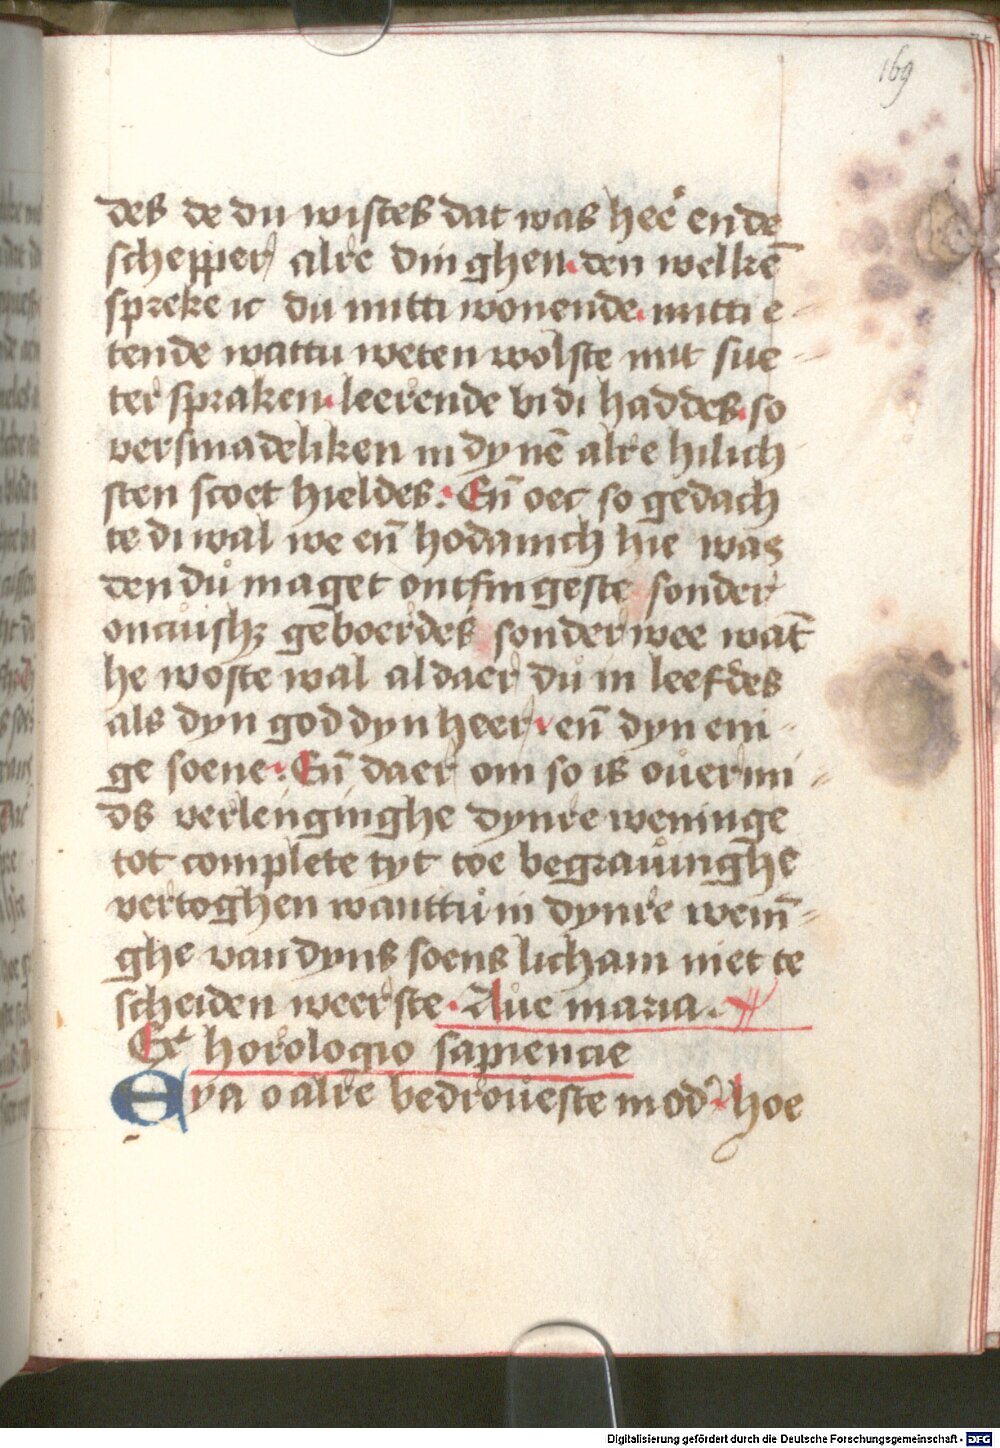 169
des de du wistes dat was heer ende
schepper alre dinghen. den welkē
spreke ic du mitti wonende. mitti e-
tende wattu weten wolste mit sue-
ter spraken. leerende bi di haddes. so
versmadeliken in dynē alre hilich
sten scoet hieldes: En̄ oec so gedach
te di wal we en̄ hodanich hie was
den dů maget ontfingeste sonder
geboerdes sonder wee wāt
he woste wal aldaer dů in leefdes
als dyn god dyn heer. en̄ dyn eni-
ge soene: En̄ daer om so is ouermi-
ds verlenginghe dynre weninge
tot complete tyt toe begrauinghe
vertoghen wanttů in dynre wenī-
ghe van dyns soens licham niet te
scheiden weerste. Aue maria.
Ex horologio sapiencie
Eya o alre bedroueste mod' hoe
Digitalisierung gefördert durch die Deutsche Forschungsgemeinschaft - DFG